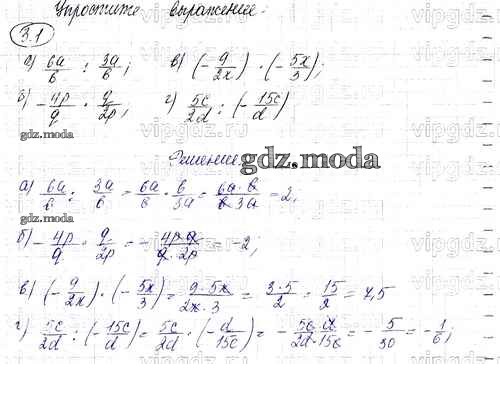 Упростите выражение:
3.1
а) 6a/b : 3a/b; в) (-9/2x) · (-5x/3);
б) -4p/q · q/2p; г) 5c/2d : (-15c/d)
gdz.moda
Решение gdz.moda
а) 6a/b : 3a/b = 6a/b · b/3a = 6a·b/b·3a = 2,
gdz.moda
б) -4p/q · q/2p = -4p·q/q·2p = -2;
в) (-9/2x) · (-5x/3) = 9·5x/2x·3 = 3·5/2 = 15/2 = 7,5
г) 5c/2d : (-15c/d) = 5c/2d · (-d/15c) = -5c·d/2d·15c = -5/30 = -1/6;
vipgdz.com